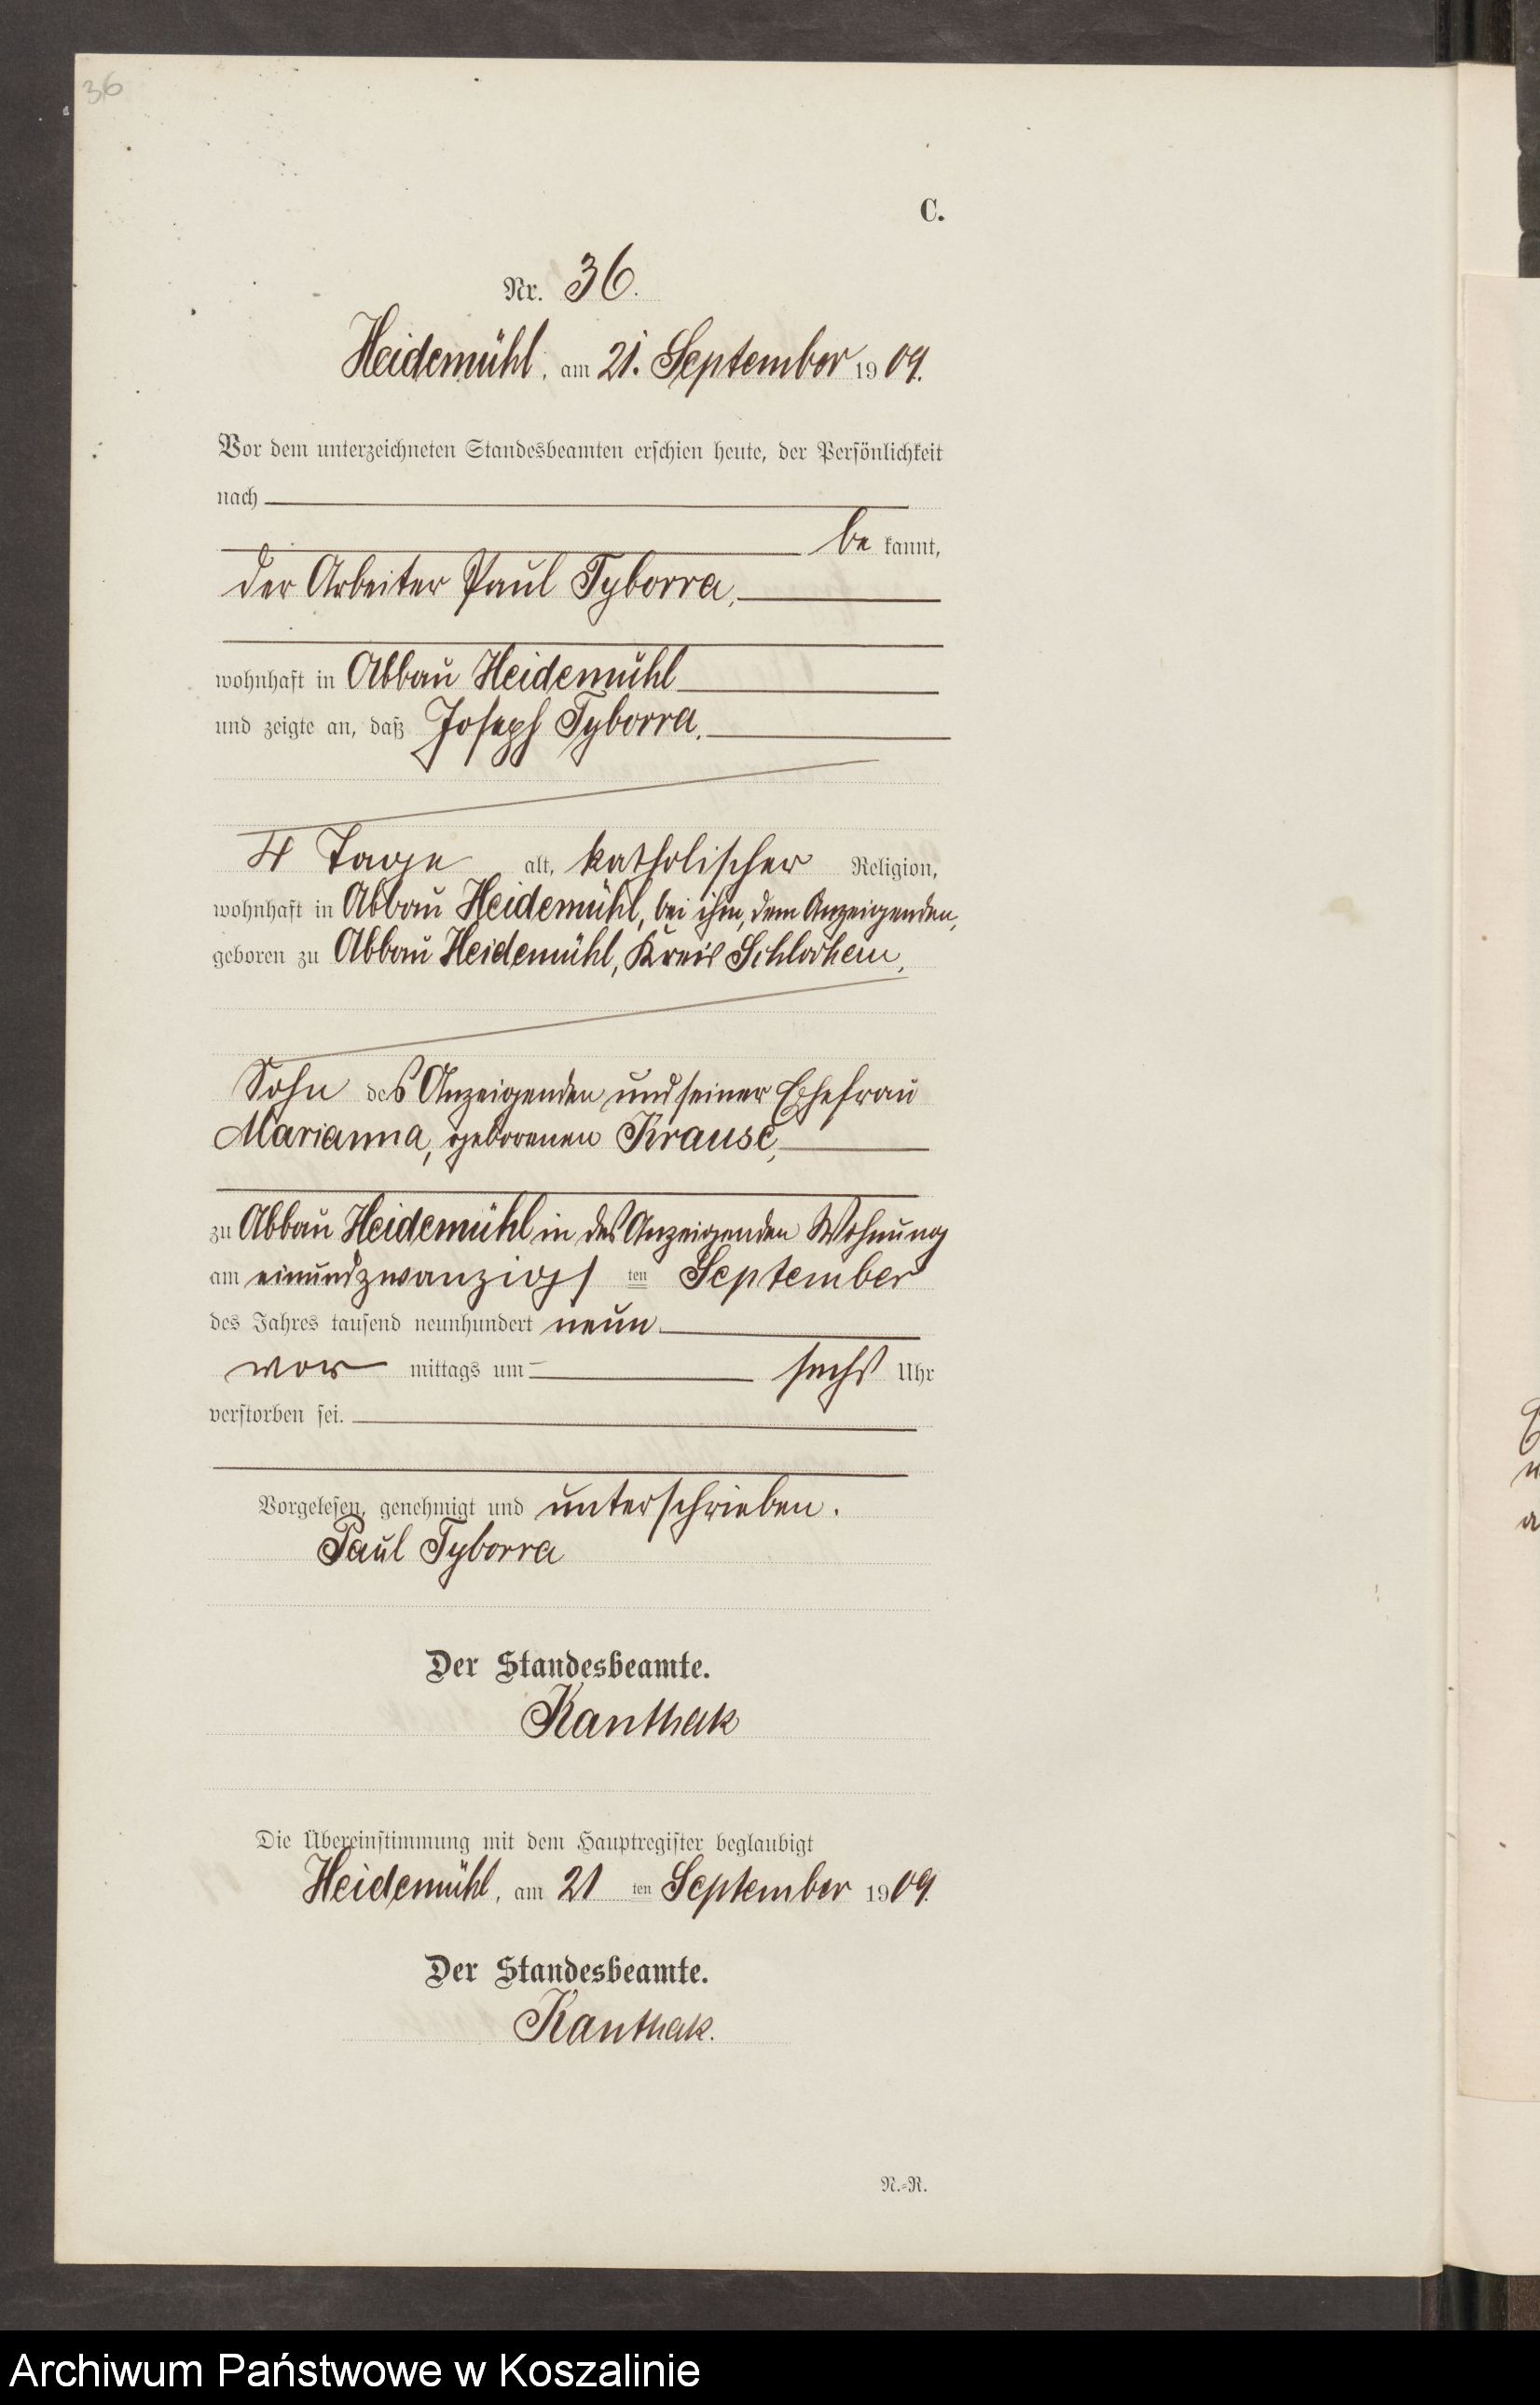 36
C.
Nr. 36.
Heidemühl, am 21. September 1909.
Vor dem unterzeichneten Standesbeamten erschien heute, der Persönlichkeit
nach
be kannt,
der Arbeiter Paul Tyborra,
wohnhaft in Abbau Heidemühl
und zeigte an, daß Joseph Tyborra,
4 Tage alt, katholischer Religion,
wohnhaft in Abbau Heidemühl, bei ihm, dem Anzeigenden,
geboren zu Abbau Heidemühl, Kreis Schlochau,
Sohn des Anzeigenden und seiner Ehefrau
Marianna, geborenen Krause,
zu Abbau Heidemühl in des Anzeigenden Wohnung
am einundzwanzigs ten September
des Jahres tausend neunhundert neun
vor mittags um sechs Uhr
verstorben sei.
Vorgelesen, genehmigt und unterschrieben.
Paul Tyborra
Der Standesbeamte.
Kanthak
Die Übereinstimmung mit dem Hauptregister beglaubigt
Heidemühl, am 21 ten September 1909.
Der Standesbeamte.
Kanthak.
N.=R.
Archiwum Państwowe w Koszalinie